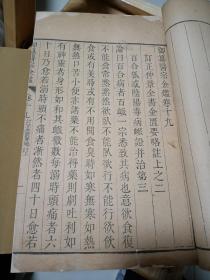 御纂醫宗金鑑卷十九
訂正仲景全書金匱要畧註上之二
百合狐惑陰陽毒病脈證并治第三
論曰百合病者百脈一宗悉致其病也意欲食復
不能食常默然欲臥不能臥欲行不能行飲
食或有美時或有不用聞食臭時如寒無寒如熱
無熱口苦小便赤諸藥不能治得藥則劇吐利如
有神靈者身形如和其脈微數每溺時頭痛者六
十日乃愈若溺時頭不痛者淅然者四十日愈若